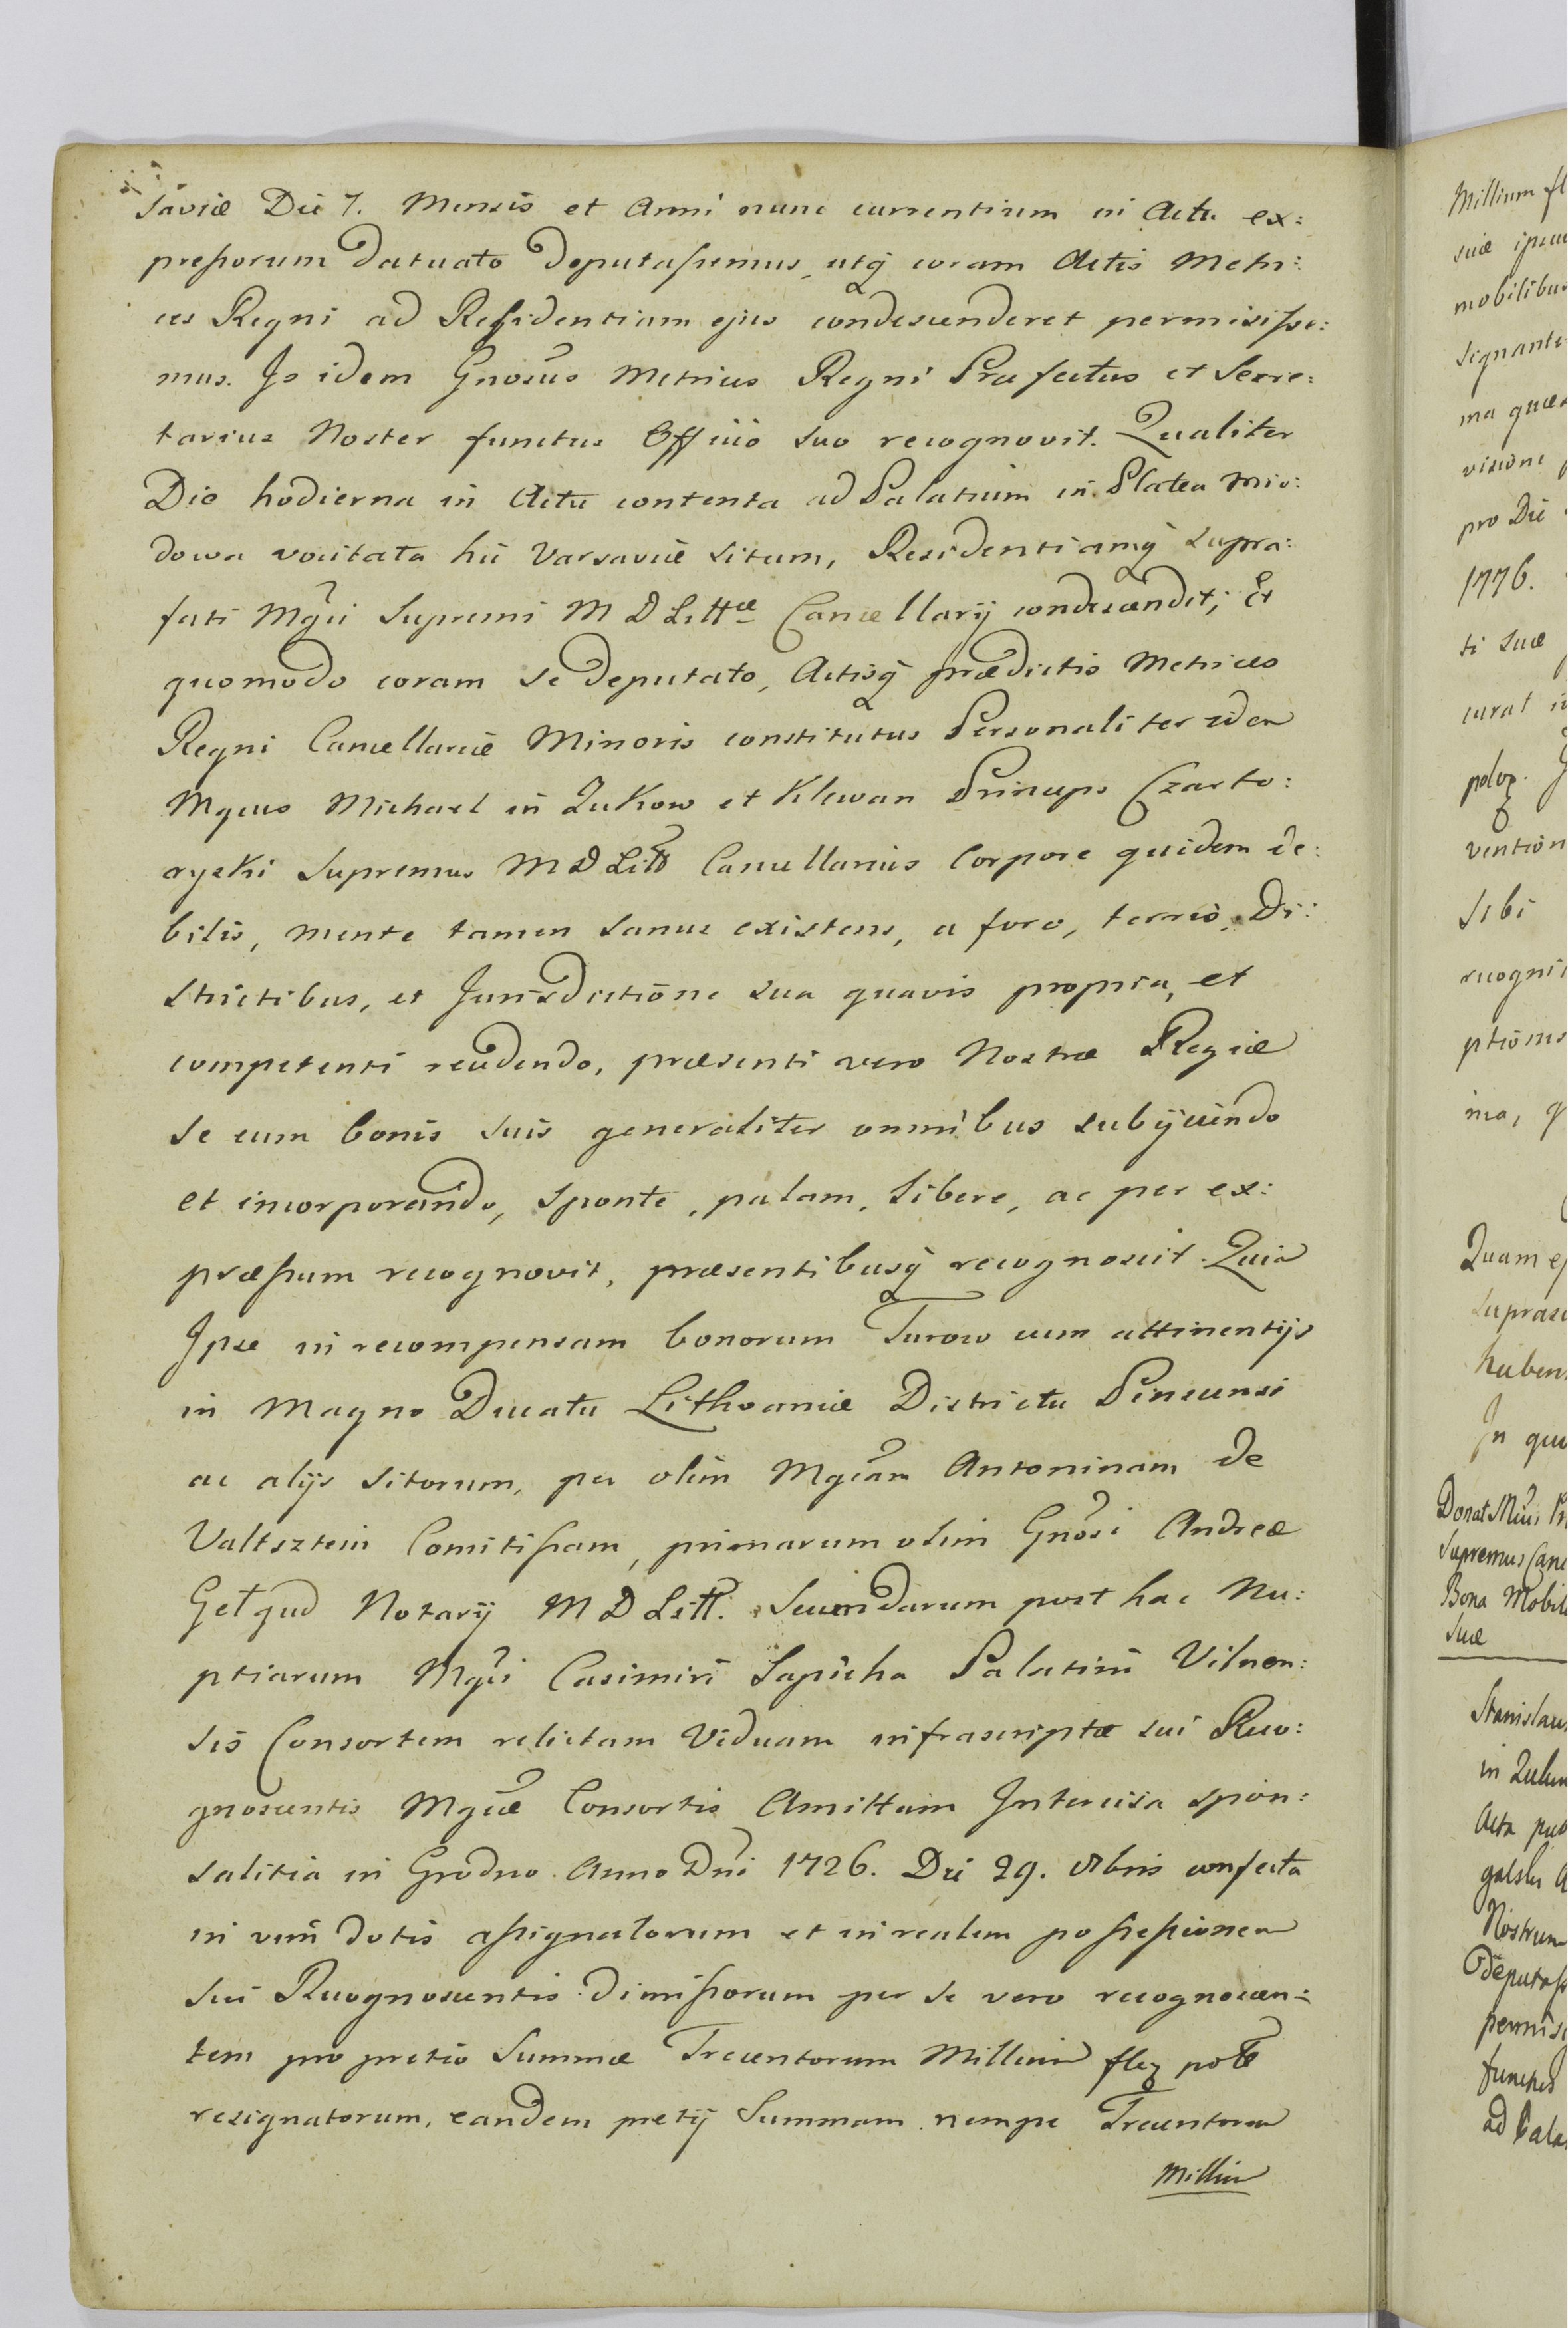 saviæ Die 7. Mensis et Anni nunc currentium in Actu ex:
preſsorum datuato Deputaſsemus, utq́ coram Actis Metri:
ces Regni ad Reſsidentiam ejus condescenderet permisiſse:
mus. Is idem Gnosus Metrices Regni Præfectus et Secre:
tarius Noster functus Officio suo recognovit. Qualiter
Die hodierna in Actu contenta ad Palatium in Platea Mio:
dowa vocitata hic Varsaviæ situm, Residentiamq́ supra:
fati Mgci Supremi M D Littæ Cancellarij condescendit; Et
quomodo coram se Deputato, Actisq́ prædictis Metrices
Regni Cancellariæ Minoris constitutus Personaliter idem
Mgcus Michael in Zukow et Klewan Princeps Czarto:
ryski Supremus M D Litt Cancellarius Corpore quidem de:
bilis, mente tamen sanus existens, a foro, terris, Di:
strictibus, et Jurisdictione sua quavis propria, et
competenti recedendo, præsenti vero Nostræ Regiæ
se cum bonis suis generaliter omnibus subijciendo
et incorporando, sponte, palam, libere, ac per ex:
præſsum recognovit, præsentibusq́ recognoscit. Quia
Ipse in recompensam bonorum Turow cum attinentijs
in Magno Ducatu Lithvaniæ Districtu Pinscensi
ac alijs sitorum, per olim Mgcam Antoninam de
Valtsztein Comitiſsam, primarum olim Gnosi Andreæ
Giełgud Notarij M D Litt. Secundarum post hac Nu:
ptiarum Mgci Casimiri Sapieha Palatini Vilnen:
sis Consortem relictam Viduam infrascriptæ sui Reco:
gnoscentis Mgcæ Consortis Amittam Intercisa spon:
salitia in Grodno Anno Dni 1726. Die 29. 8bris confecta
in vim dotis aſsignatorum et in realem poſseſsionem
sui Recognoscentis dimiſsorum per se vero recognoscen:
tem pro pretio Summæ Trecentorum Millium flq pol
resignatorum, eandem pretij Summam nempe Trecentorum
Millium
Millium fl
suæ ipsum
mobilibus
signante
ma quæ
visione
pro Die
1776.
ti suæ
curat
polq.
vention
sibi
recogni
ptiones
ma, q
Quam
suprasc
haben
In quo
Donat
Supremus Canc
Bona Mobil
suæ
Stanislaus
in
Acta
Nostrum
deputaſs
permis
ad Pala